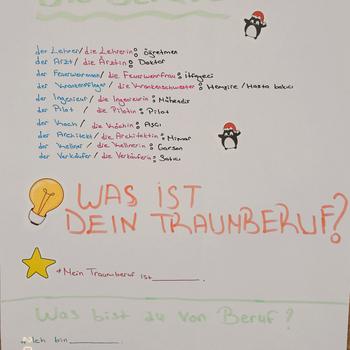 der Lehrer/die Lehrerin: öğretmen
der Arzt/die Ärztin: Doktor
der Feuerwehrmann/die Feuerwehrfrau: itfaiyeci
der Krankenpfleger/die Krankenschwester: Hemşire/Hasta bakıcı
der Ingenieur/die Ingenieurin: Mühendis
der Pilot/die Pilotin: Pilot
der Koch/die Köchin: Aşçı
der Architekt/die Architektin: Mimar
der Kellner/die Kellnerin: Garson
der Verkäufer/die Verkäuferin: Satıcı
WAS IST
DEIN TRAUMBERUF?
* Mein Traumberuf ist________.
Was bist du von Beruf?
* Ich bin________.